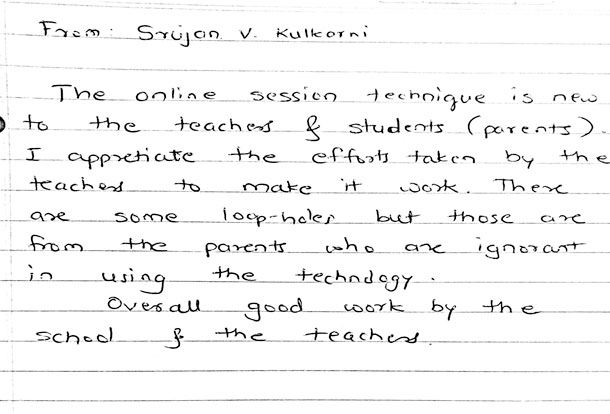 From: Srujan V. Kulkarni
The online session technique is new
to the teachers & students (parents).
I appretiate the efforts taken by the
teachers to make it work. There
are some loop-holes but those are
from the parents who are ignorant
in using the technology.
Overall good work by the
school & the teachers.